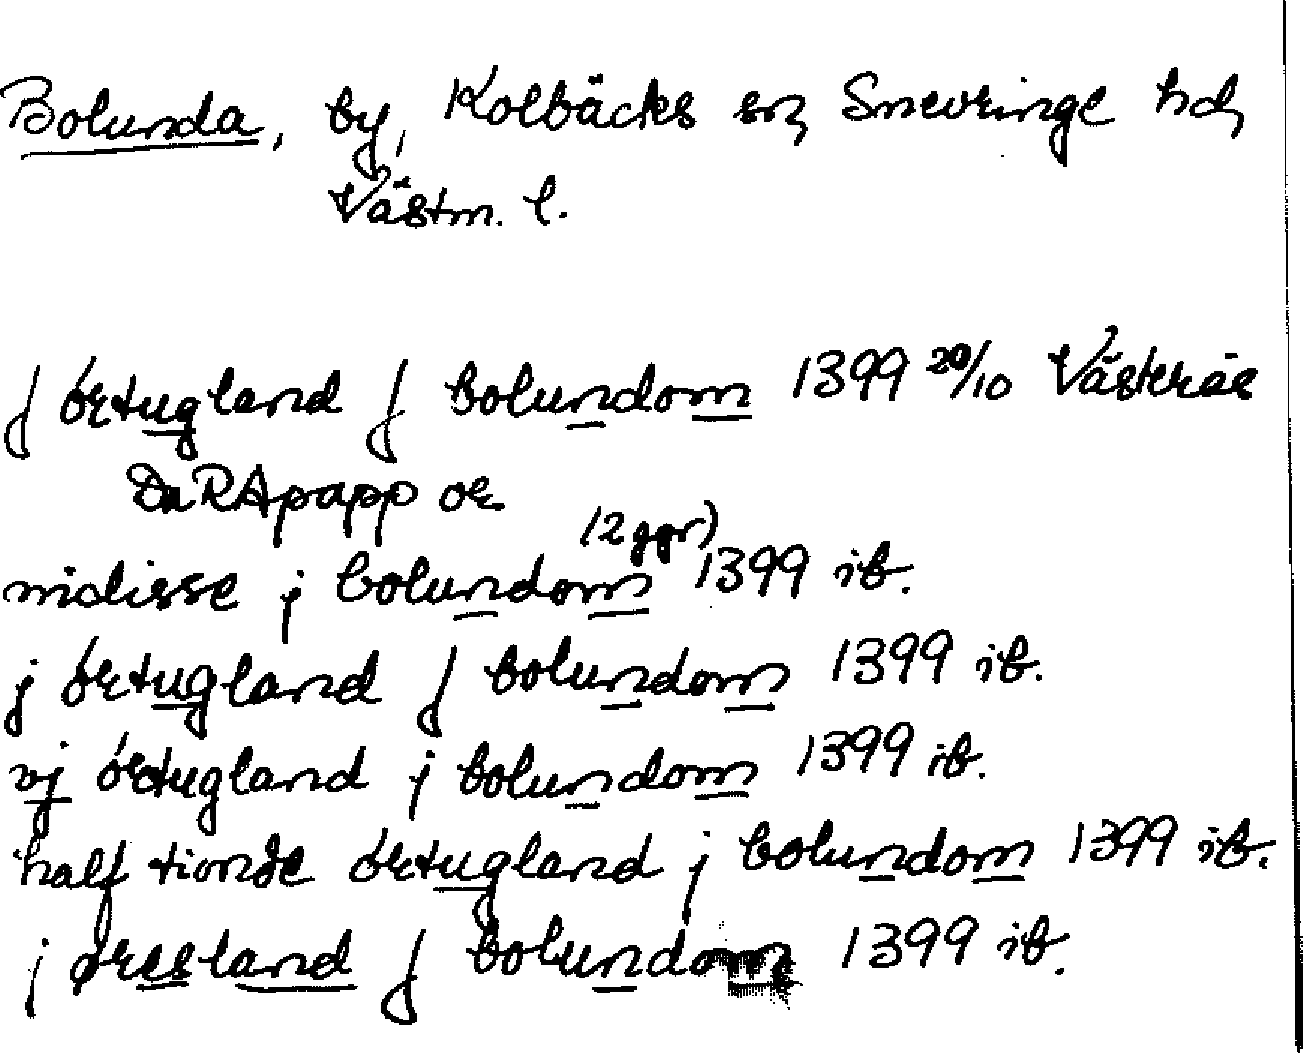 Bolunda, by, Kolbäcks sn, Snevringe hd,
Västm. l.
J örtugland J bolundom 1399 20/10 Västerås
Da RApapp or.
midlisse j bolundom (2 ggr) 1399 ib.
j örtugland J bolundom 1399 ib.
vj örtugland j bolundom 1399 ib.
half tionde örtugland j bolundom 1399 ib.
j øresland J bolundom 1399 ib.